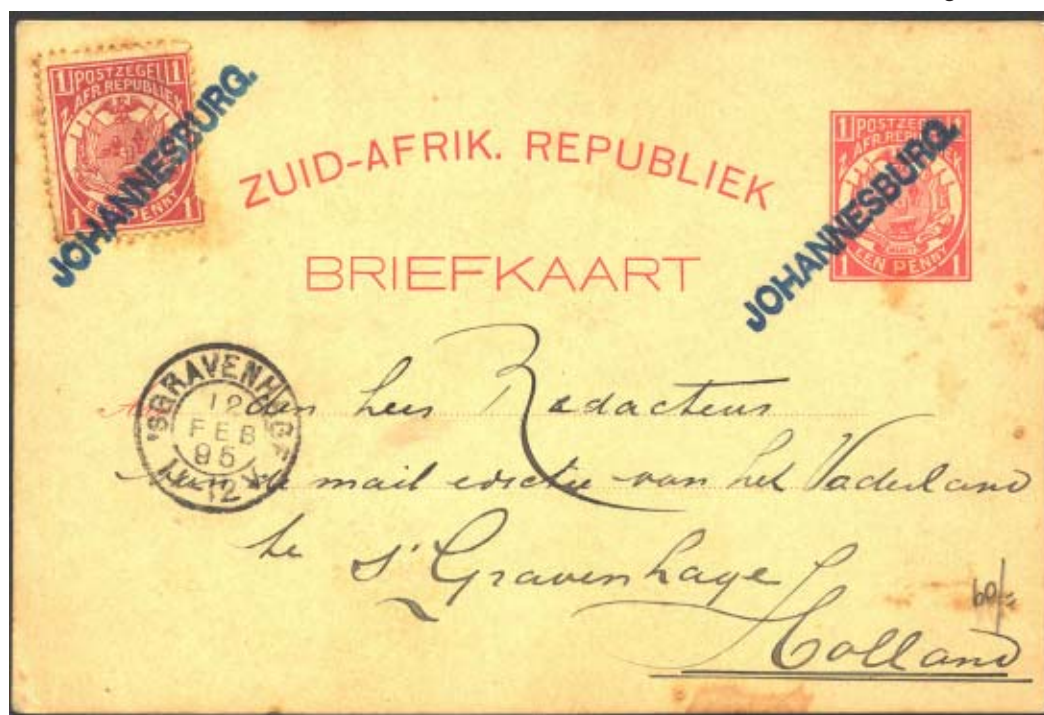 1 POSTZEGEL 1
Z. AFR. REPUBLIEK
1 EEN PENNY 1
JOHANNESBURG.
ZUID-AFRIK. REPUBLIEK
BRIEFKAART
1 POSTZEGEL 1
Z. AFR. REPUBLIEK
1 EEN PENNY 1
JOHANNESBURG.
'SGRAVENHAGE
12
FEB
95
12
Aan den heer Redacteur
van de mail editie van het Vaderland
te s'Gravenhage
Holland
60/=